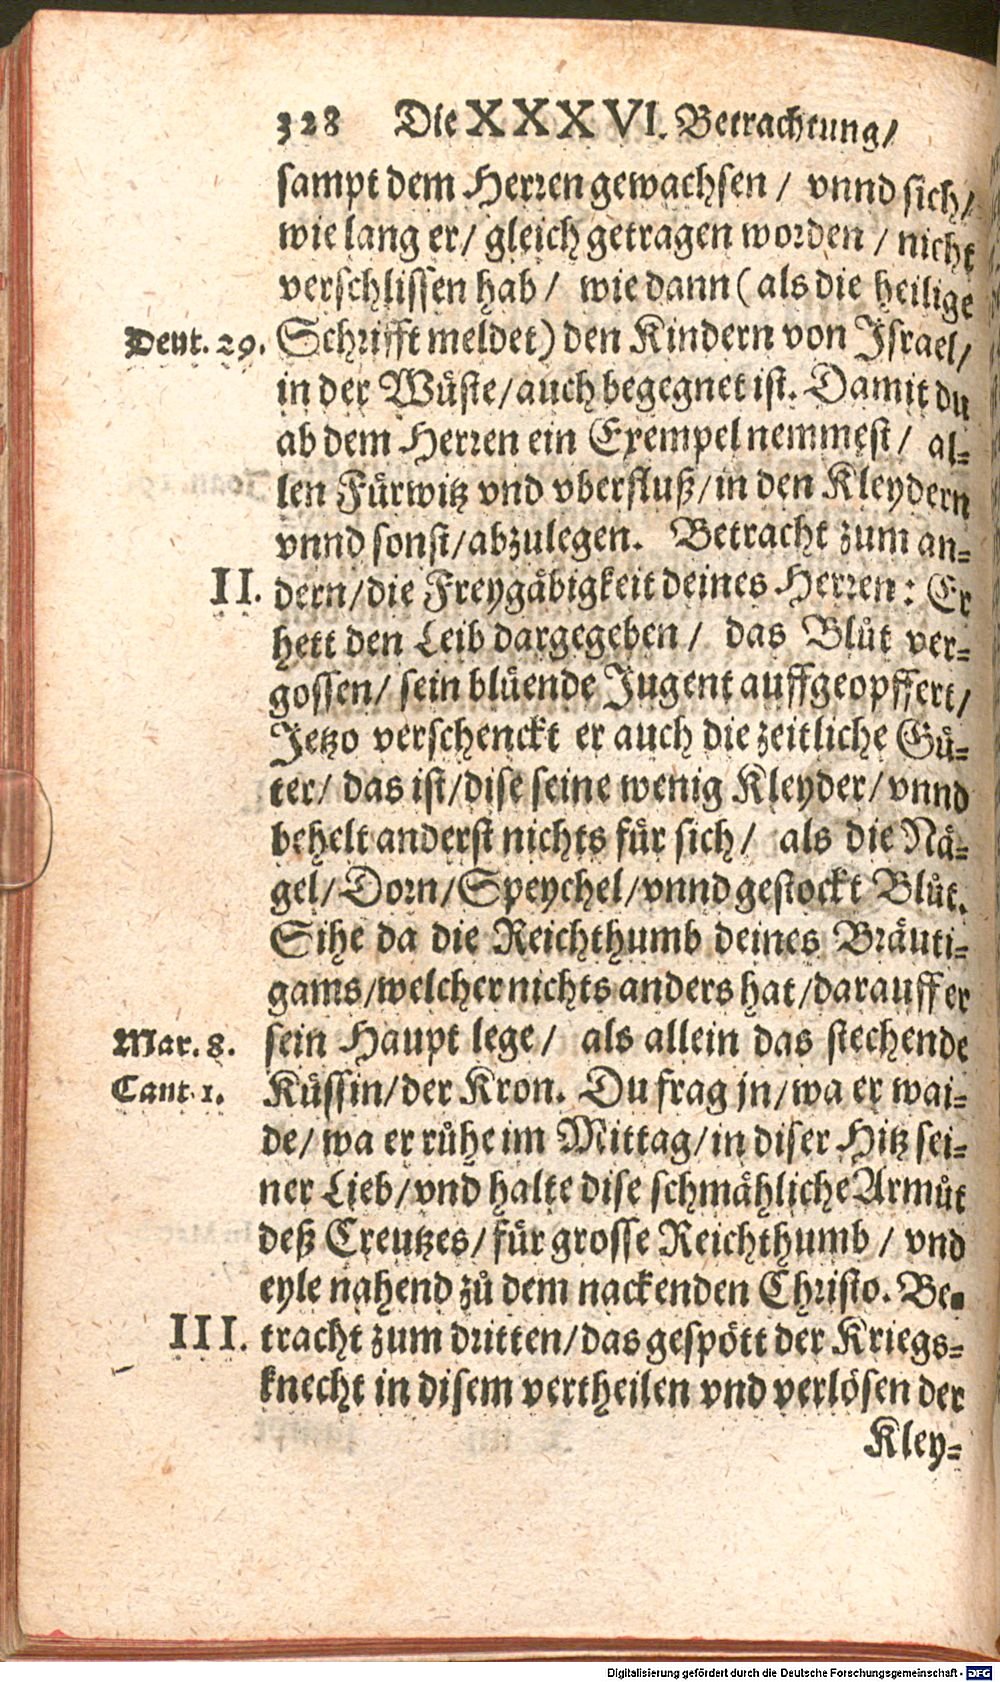 328 Die XXXVI. Betrachtung/
sampt dem Herren gewachsen / vnnd sich/
wie lang er/ gleich getragen worden / nicht
verschlissen hab / wie dann (als die heilige
Deut. 29. Schrifft meldet) den Kindern von Israel/
in der Wüste/auch begegnet ist. Damit du
ab dem Herren ein Exempel nemmest / al-
len Fürwitz vnd vberfluß/in den Kleydern
vnnd sonst/abzulegen. Betracht zum an-
II. dern/die Freygäbigkeit deines Herren: Er
hett den Leib dargegeben / das Blůt ver-
gossen/ sein blüende Jugent auffgeopffert/
Jetzo verschenckt er auch die zeitliche Gü-
ter/ das ist/dise seine wenig Kleyder/ vnnd
behelt anderst nichts für sich/ als die Nä-
gel/Dorn/Speychel/vnnd gestockt Blůt.
Sihe da die Reichthumb deines Bräuti-
gams/welcher nichts anders hat/darauff er
Mar. 8. sein Haupt lege / als allein das stechende
Cant. 1. Küssin/der Kron. Du frag jn/wa er wai-
de/ wa er růhe im Mittag/in diser Hitz sei-
ner Lieb/vnd halte dise schmähliche Armůt
deß Creutzes/ für grosse Reichthumb / vnd
eyle nahend zů dem nackenden Christo. Be-
III. tracht zum dritten/das gespött der Kriegs-
knecht in disem vertheilen vnd verlösen der
Kley-
Digitalisierung gefördert durch die Deutsche Forschungsgemeinschaft - DFG